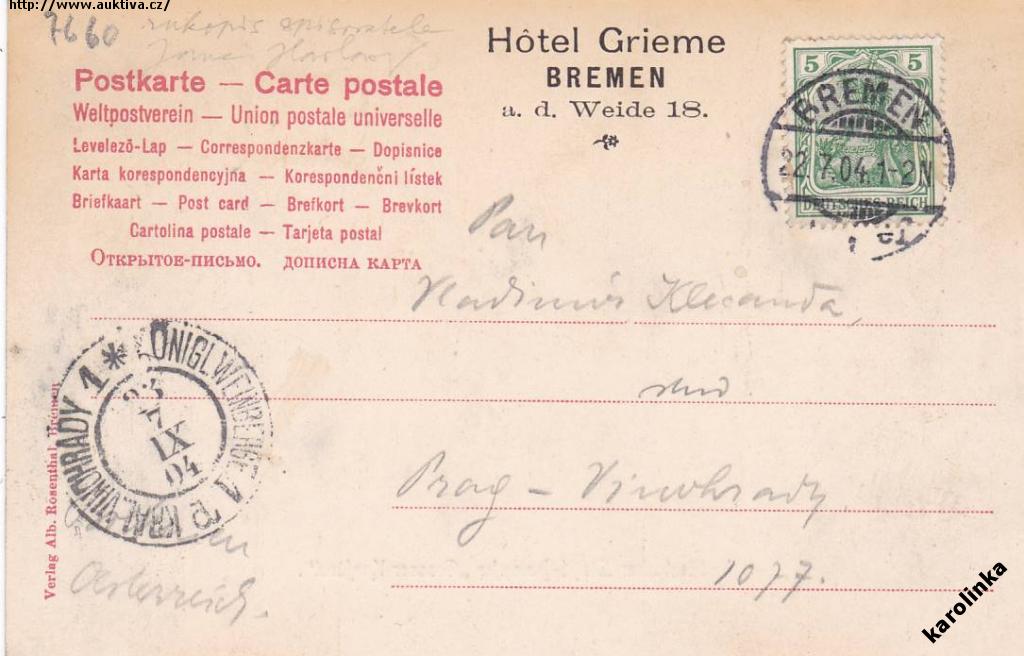 http://www.auktiva.cz/
7660 rukopis spisovatele
Postkarte — Carte postale
Weltpostverein — Union postale universelle
Levelezö-Lap — Correspondenzkarte — Dopisnice
Karta korespondencyjna — Korespondenčni lístek
Briefkaart — Post card — Brefkort — Brevkort
Cartolina postale — Tarjeta postal
Открытое-письмо. дописна карта
Hôtel Grieme
BREMEN
a. d. Weide 18.
5 5
DEUTSCHES REICH
BREMEN
22.7.04.1-2N
Pan
Vladimír Klecanda,
stud
Prag – Vinohrady
1077.
KÖNIGL. WEINBERGE 1
KRÁL. VINOHRADY 1
23
7
IX
04
Oesterreich.
Verlag Alb. Rosenthal, Bremen
karolinka